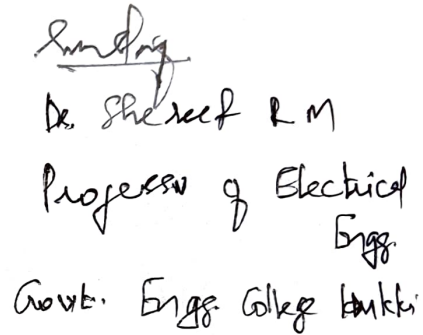 Dr. Shereef R M
Professor of Electrical
Engg.
Govt. Engg. College Idukki